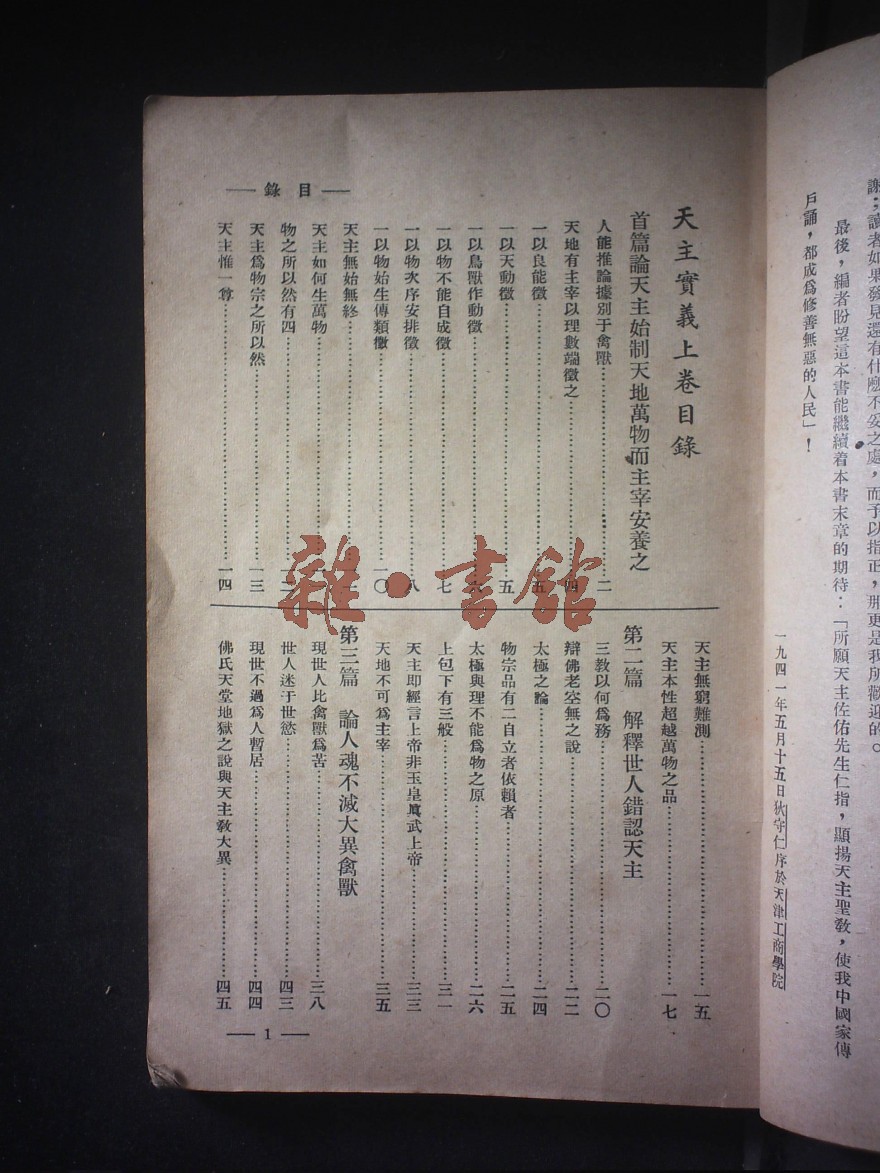 謝；讀者如果發見還有什麼不妥之處，而予以指正，那更是我所歡迎的。
最後，編者盼望這本書能繼續着本書末章的期待：「所願天主佐佑先生仁指，顯揚天主聖教，使我中國家傳
戶誦，都成爲修善無惡的人民」！
一九四一年五月十五日狄守仁序於天津工商學院
— 目錄 —
天主實義上卷目錄
首篇論天主始制天地萬物而主宰安養之
人能推論據別于禽獸……二
天地有主宰以理數端徵之……四
一以良能徵……五
一以天動徵……五
一以鳥獸作動徵……六
一以物不能自成徵……七
一以物次序安排徵……八
一以物始生傳類徵……一〇
天主無始無終……
天主如何生萬物……
物之所以然有四……一二
天主爲物宗之所以然……一三
天主惟一尊……一四
天主無窮難測……一五
天主本性超越萬物之品……一七
第二篇　解釋世人錯認天主
三教以何爲務……二〇
辯佛老空無之說……二二
太極之論……二四
物宗品有二自立者依賴者……二五
太極與理不能爲物之原……二六
上包下有三般……三一
天主即經言上帝非玉皇眞武上帝……三三
天地不可爲主宰……三五
第三篇　論人魂不滅大異禽獸
現世人比禽獸爲苦……三八
世人迷于世慾……四三
現世不過爲人暫居……四四
佛氏天堂地獄之說與天主教大異……四五
— 1 —
雜·書館